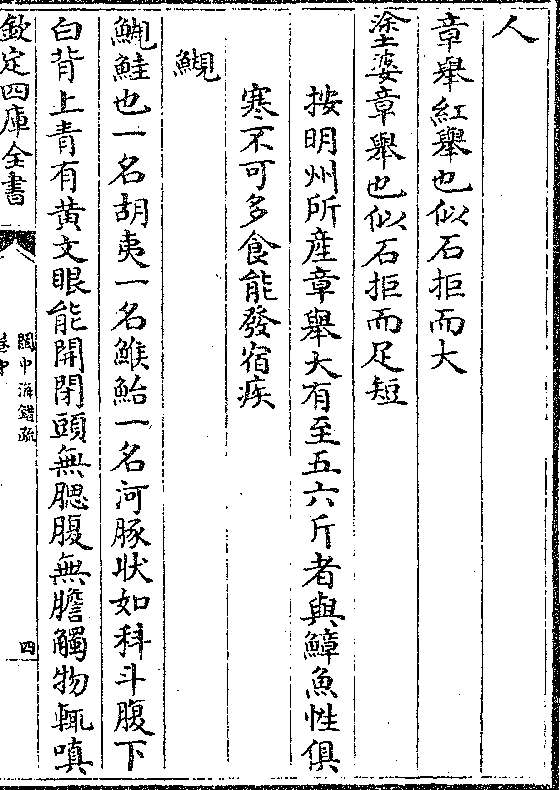 人
章舉紅舉也似石拒而大
塗婆章舉也似石拒而足短
按明州所産章舉大有至五六斤者與鱆魚性俱
寒不可多食能發宿疾
䱓
䱓鮭也一名胡夷一名鯸鮐一名河豚狀如科斗腹下
白背上青有黄文眼能開閉頭無腮腹無膽觸物輒嗔
欽定四庫全書
閩中海錯疏
卷中
四